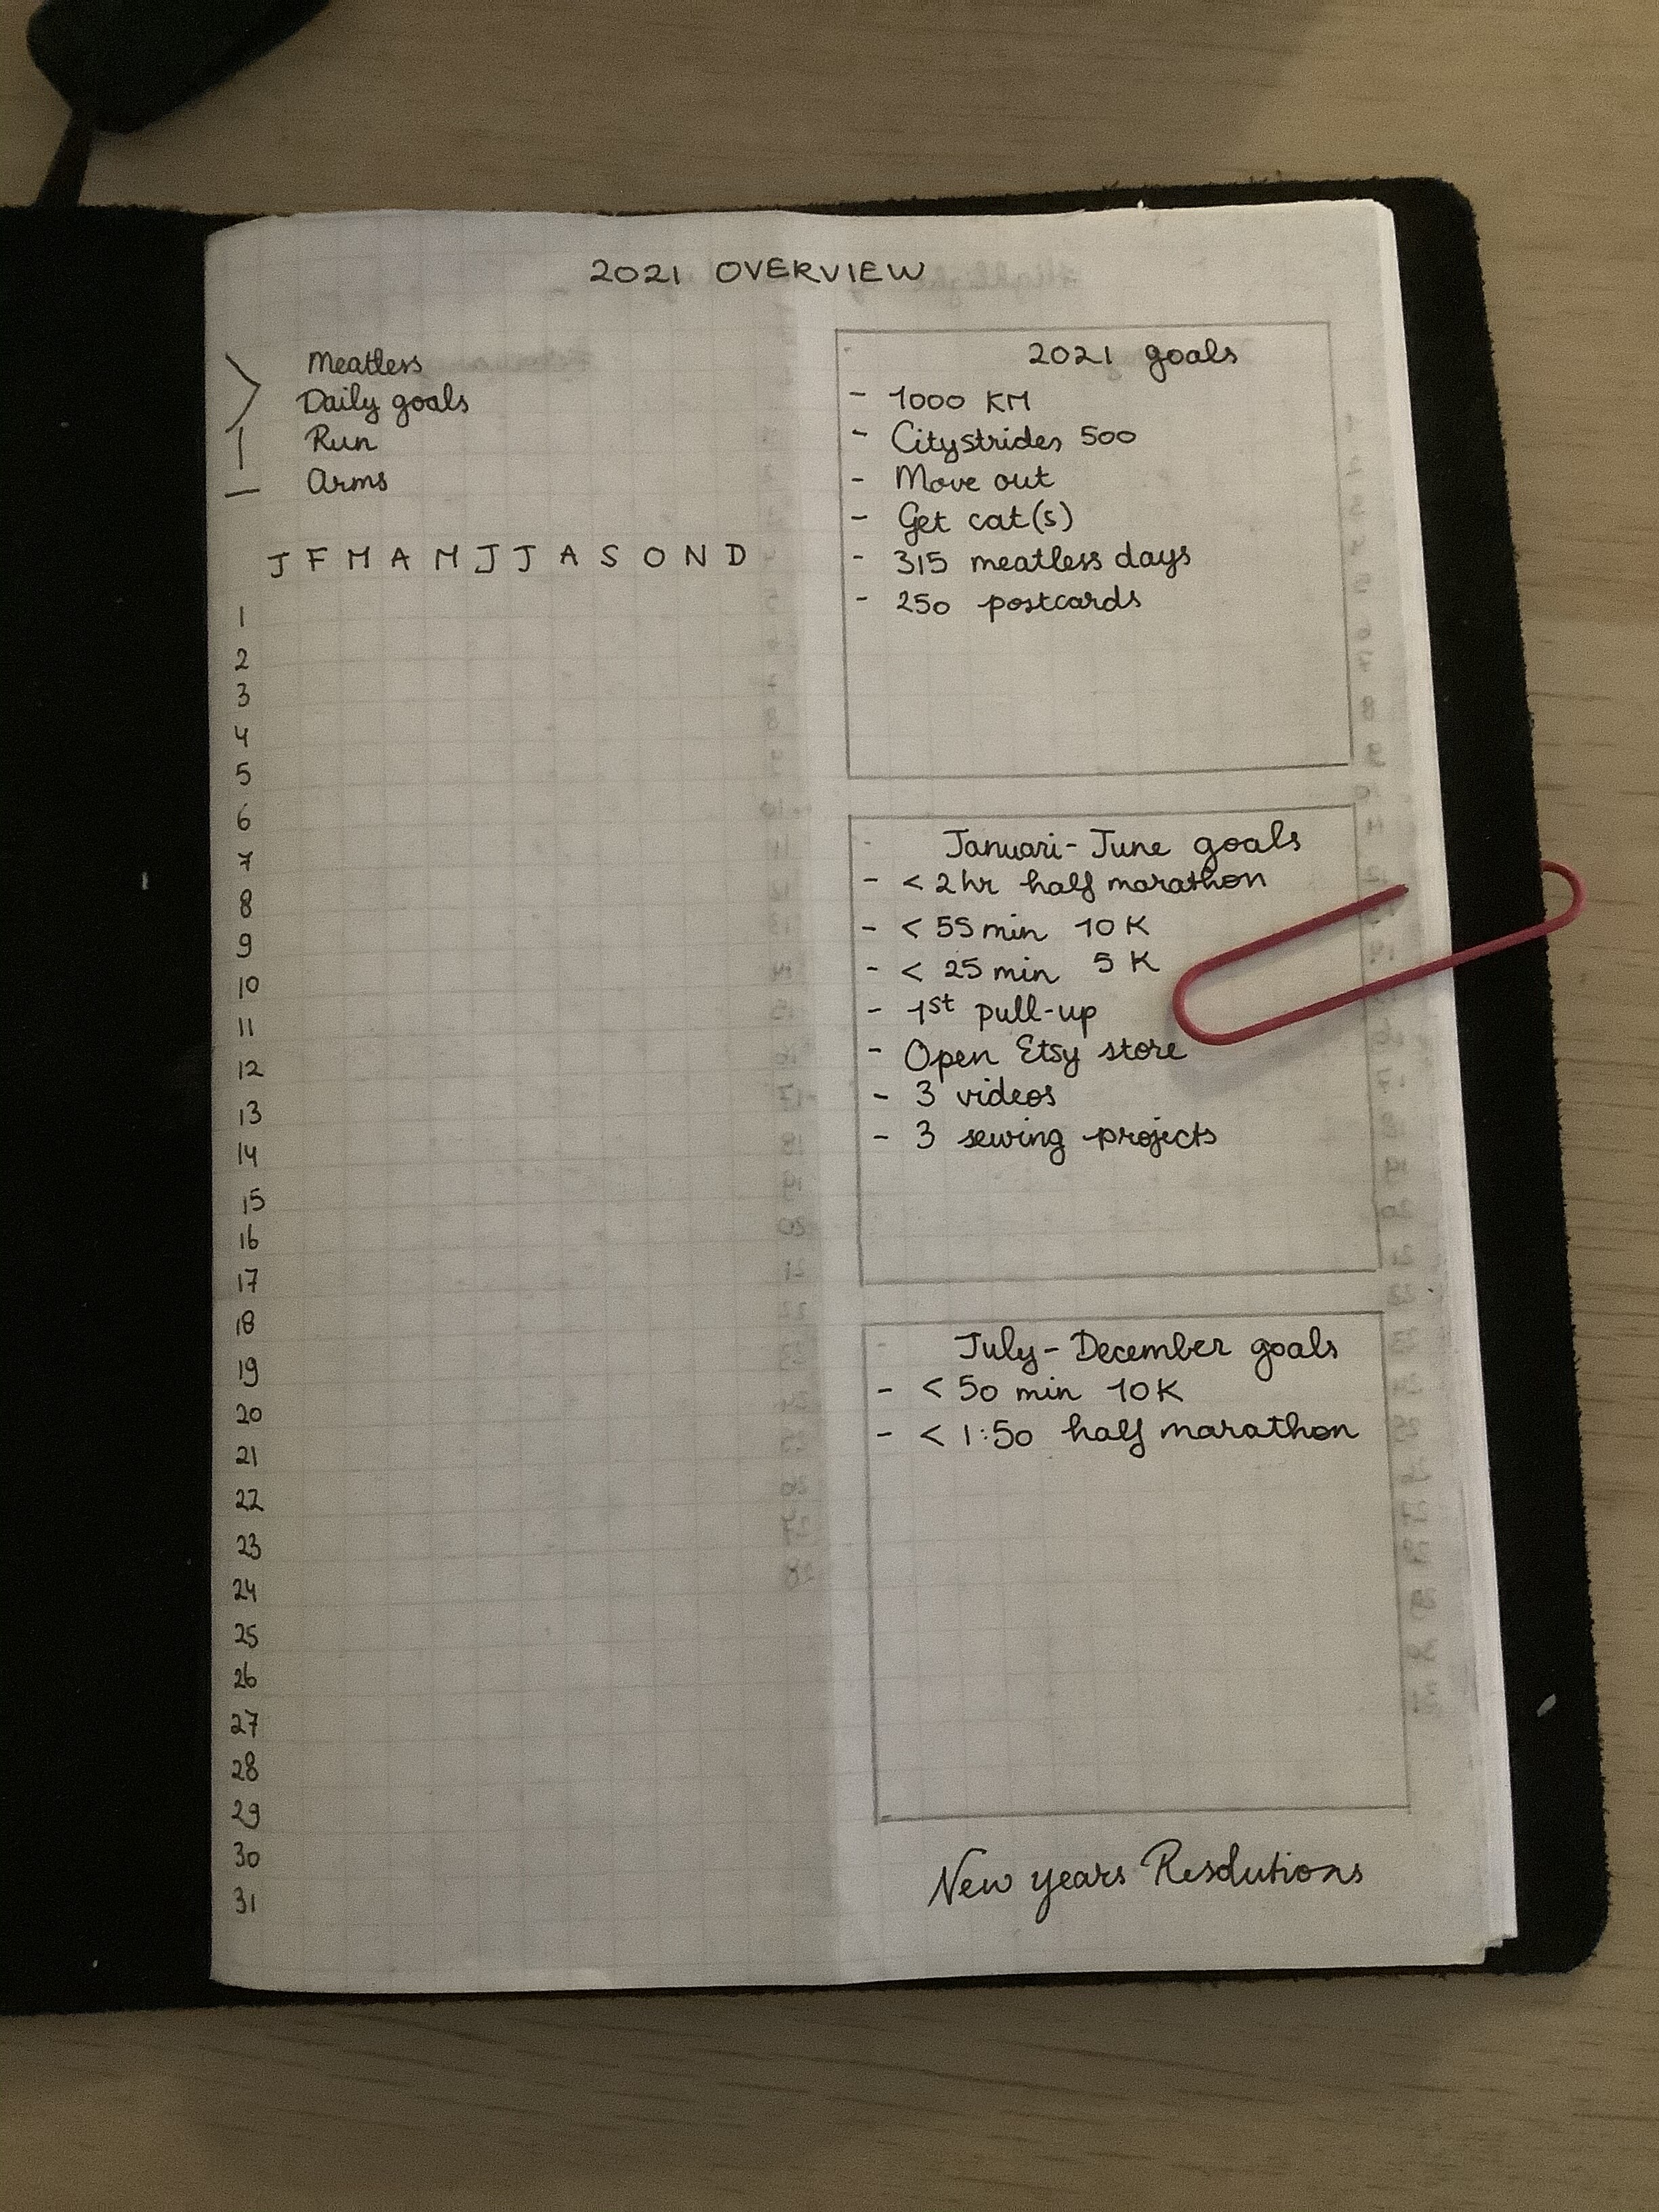 2021 OVERVIEW
Meatless
Daily goals
Run
Arms
J F M A M J J A S O N D
1
2
3
4
5
6
7
8
9
10
11
12
13
14
15
16
17
18
19
20
21
22
23
24
25
26
27
28
29
30
31
2021 goals
- 1000 KM
- Citystrides 500
- Move out
- Get cat(s)
- 315 meatless days
- 250 postcards
Januari - June goals
- < 2hr half marathon
- < 55 min 10 K
- < 25 min 5 K
- 1st pull-up
- Open Etsy store
- 3 videos
- 3 sewing projects
July - December goals
- < 50 min 10K
- < 1:50 half marathon
New years Resolutions